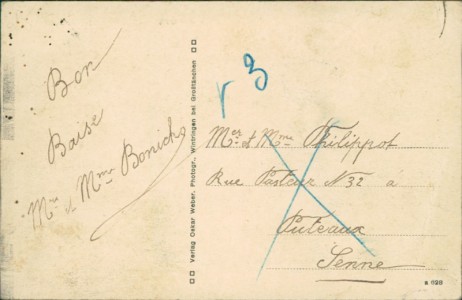 Bon
Baise
Mr et Mme Bonich
Verlag Oskar Weber, Photogr., Wintringen bei Großtänchen
r 3
Mr. et Mme Philippot
Rue Pasteur N 32 à
Puteaux
Senne
s 028